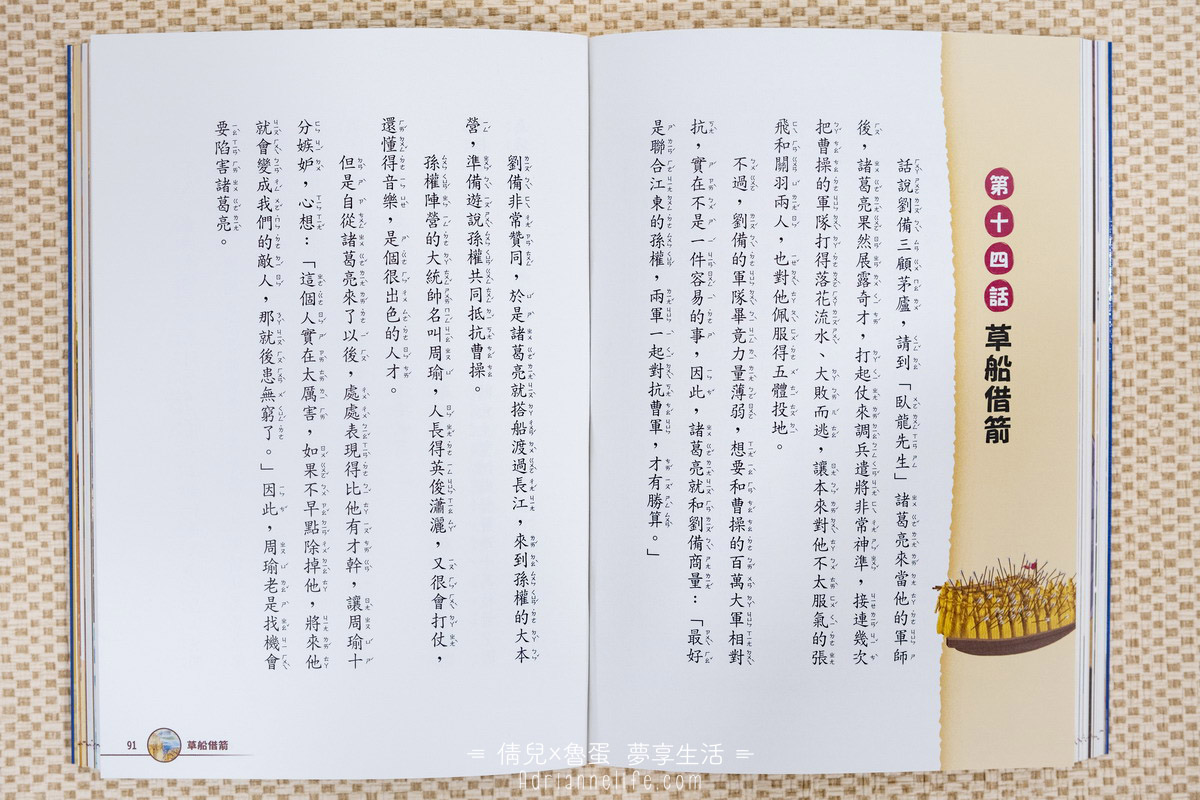 第十四話 草船借箭
話說劉備三顧茅廬，請到「臥龍先生」諸葛亮來當他的軍師
後，諸葛亮果然展露奇才，打起仗來調兵遣將非常神準，接連幾次
把曹操的軍隊打得落花流水、大敗而逃，讓本來對他不太服氣的張
飛和關羽兩人，也對他佩服得五體投地。
不過，劉備的軍隊畢竟力量薄弱，想要和曹操的百萬大軍相對
抗，實在不是一件容易的事，因此，諸葛亮就和劉備商量：「最好
是聯合江東的孫權，兩軍一起對抗曹軍，才有勝算。」
劉備非常贊同，於是諸葛亮就搭船渡過長江，來到孫權的大本
營，準備遊說孫權共同抵抗曹操。
孫權陣營的大統帥名叫周瑜，人長得英俊瀟灑，又很會打仗，
還懂得音樂，是個很出色的人才。
但是自從諸葛亮來了以後，處處表現得比他有才幹，讓周瑜十
分嫉妒，心想：「這個人實在太厲害，如果不早點除掉他，將來他
就會變成我們的敵人，那就後患無窮了。」因此，周瑜老是找機會
要陷害諸葛亮。
91 草船借箭
倩兒x魯蛋 夢享生活
Adriannelife.com